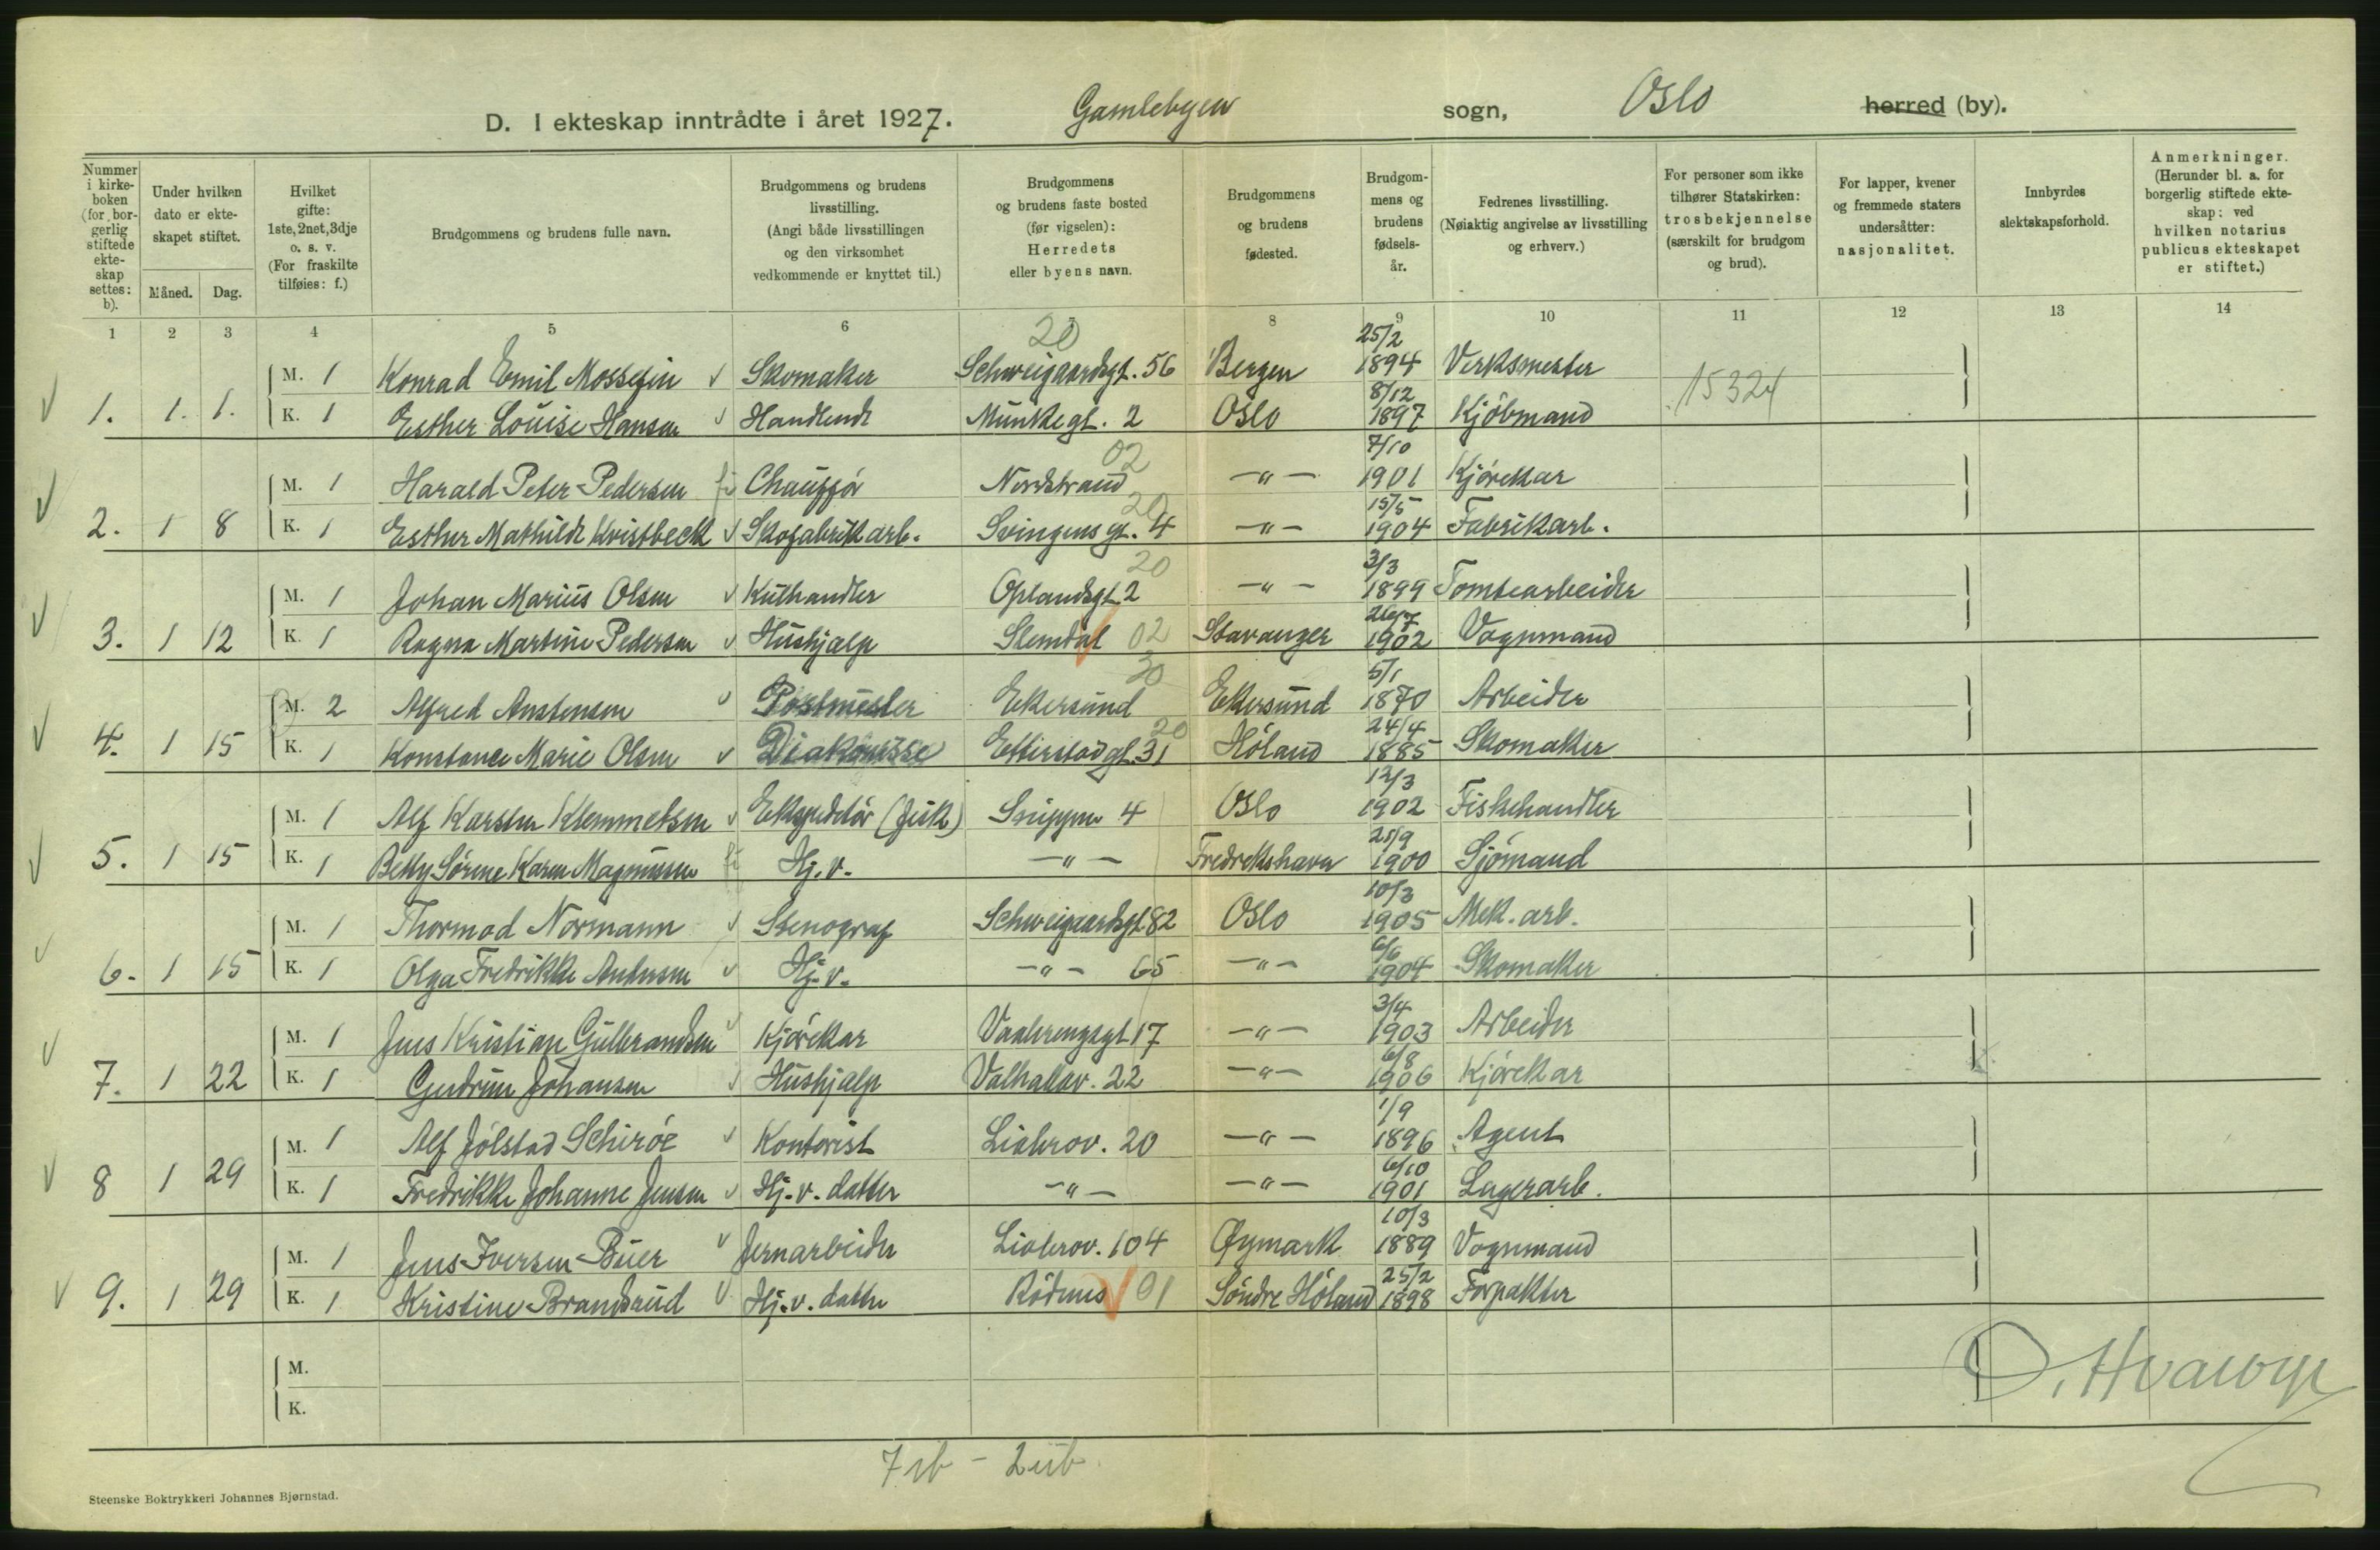 D. I ekteskap inntrådte i året 1927. Gamlebyen sogn, Oslo herred (by).
Nummer i kirke-boken (for bor-gerlig stiftede ekte-skap settes: b).
Under hvilken dato er ekte-skapet stiftet.
Måned. Dag.
Hvilket gifte: 1ste, 2net, 3dje o. s. v. (For fraskilte tilføies: f.)
Brudgommens og brudens fulle navn.
Brudgommens og brudens livsstilling. (Angi både livsstillingen og den virksomhet vedkommende er knyttet til.)
Brudgommens og brudens faste bosted (før vigselen): Herredets eller byens navn.
Brudgommens og brudens fødested.
Brudgom-mens og brudens fødsels-år.
Fedrenes livsstilling. (Nøiaktig angivelse av livsstilling og erhverv.)
For personer som ikke tilhører Statskirken: trosbekjennelse (særskilt for brudgom og brud).
For lapper, kvener og fremmede staters undersåtter: nasjonalitet.
Innbyrdes slektskapsforhold.
Anmerkninger. (Herunder bl. a. for borgerlig stiftede ekte-skap: ved hvilken notarius publicus ekteskapet er stiftet.)
1 2 3 4 5 6 8 9 10 11 12 13 14
20 25/2
M. 1 Konrad Emil Mossefin Skomaker Schweigaardsgt. 56 Bergen 1894 Verksmester
15324
8/12
1. 1. 1. K. 1 Esther Louise Hansen Handlende Munkegt. 2 Oslo 1897 Kjøbmand
02 7/10
M. 1 Harald Peter Pedersen Chauffør Nordstrand -"- 1901 Kjørekar
20 15/5
2. 1 8 K. 1 Esther Mathilde Kvistbeck Skofabrikarb. Svingens gt. 4 -"- 1904 Fabrikarb.
20 3/3
M. 1 Johan Marius Olsen Kulhandler Oplandsgt. 2 -"- 1899 Tomtearbeider
26/7
3. 1 12 K. 1 Ragna Martine Pedersen Hushjælp Slemdal 02 Stavanger 1902 Vognmand
30 5/1
M. 2 Alfred Austensen Postmester Ekersund Ekersund 1870 Arbeider
20 24/4
4. 1 15 K. 1 Konstance Marie Olsen Diakonisse Etterstadgt. 31 Høland 1885 Skomaker
12/3
M. 1 Alf Karsten Klemmetsen Ekspeditør (fisk) Snippen 4 Oslo 1902 Fiskehandler
5. 1 15 K. 1 Betty Sørine Karen Magnussen Hj. v. -"- Fredrikshavn 1900 Sjømand
10/3
M. 1 Thormod Normann Stenograf Schweigaardsgt. 82 Oslo 1905 Mek. arb.
6/6
6. 1 15 K. 1 Olga Fredrikke Andersen Hj. v. -"- 65 -"- 1904 Skomaker
3/4
M. 1 Jens Kristian Gulbrandsen Kjørekar Vaalerengsgt. 17 -"- 1903 Arbeider
6/8
7. 1 22 K. 1 Gudrun Johansen Hushjælp Valhallav. 22 -"- 1906 Kjørekar
1/9
M. 1 Alf Jølstad Schirøe Kontorist Liabrov. 20 -"- 1896 Agent
6/10
8 1 29 K. 1 Fredrikke Johanne Jensen Hj. v. datter -"- -"- 1901 Lagerarb.
10/3
M. 1 Jens Iversen Buer Jernarbeider Liabrov. 104 Øymark 1889 Vognmand
25/2
9. 1 29 K. 1 Kristine Brandsrud Hj. v. datter Rødenes 01 Søndre Høland 1898 Forpakter
M.
K.
Steenske Boktrykkeri Johannes Bjørnstad.